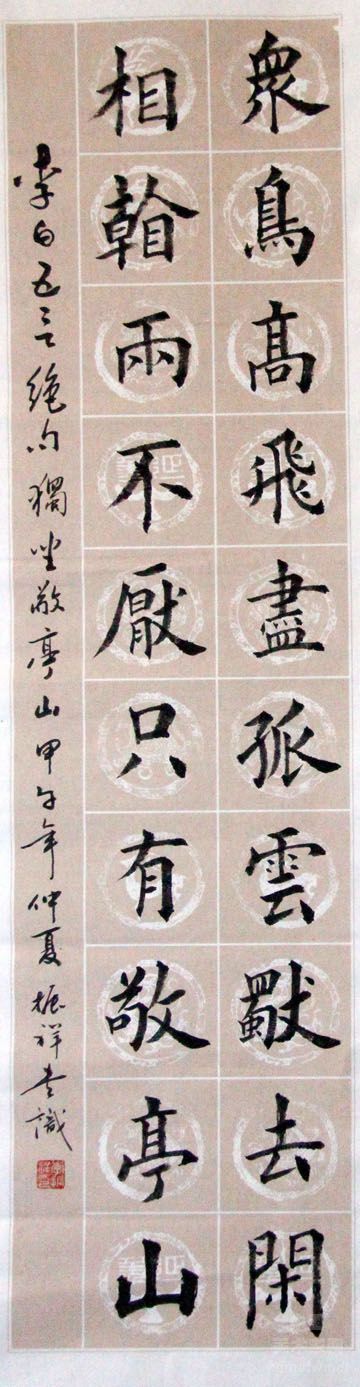 衆鳥髙飛盡孤雲獨去閑
相看兩不厭只有敬亭山
李白五言絶句獨坐敬亭山甲午年仲夏振祥書識